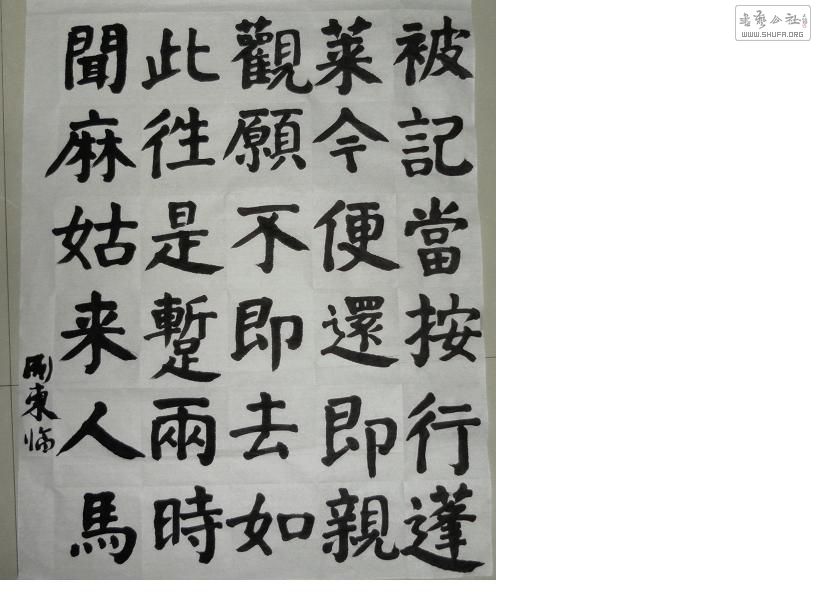 被記當按行蓬
萊今便還即親
觀願不即去如
此徃是蹔兩時
聞麻姑来人馬
東臨
WWW.SHUFA.ORG